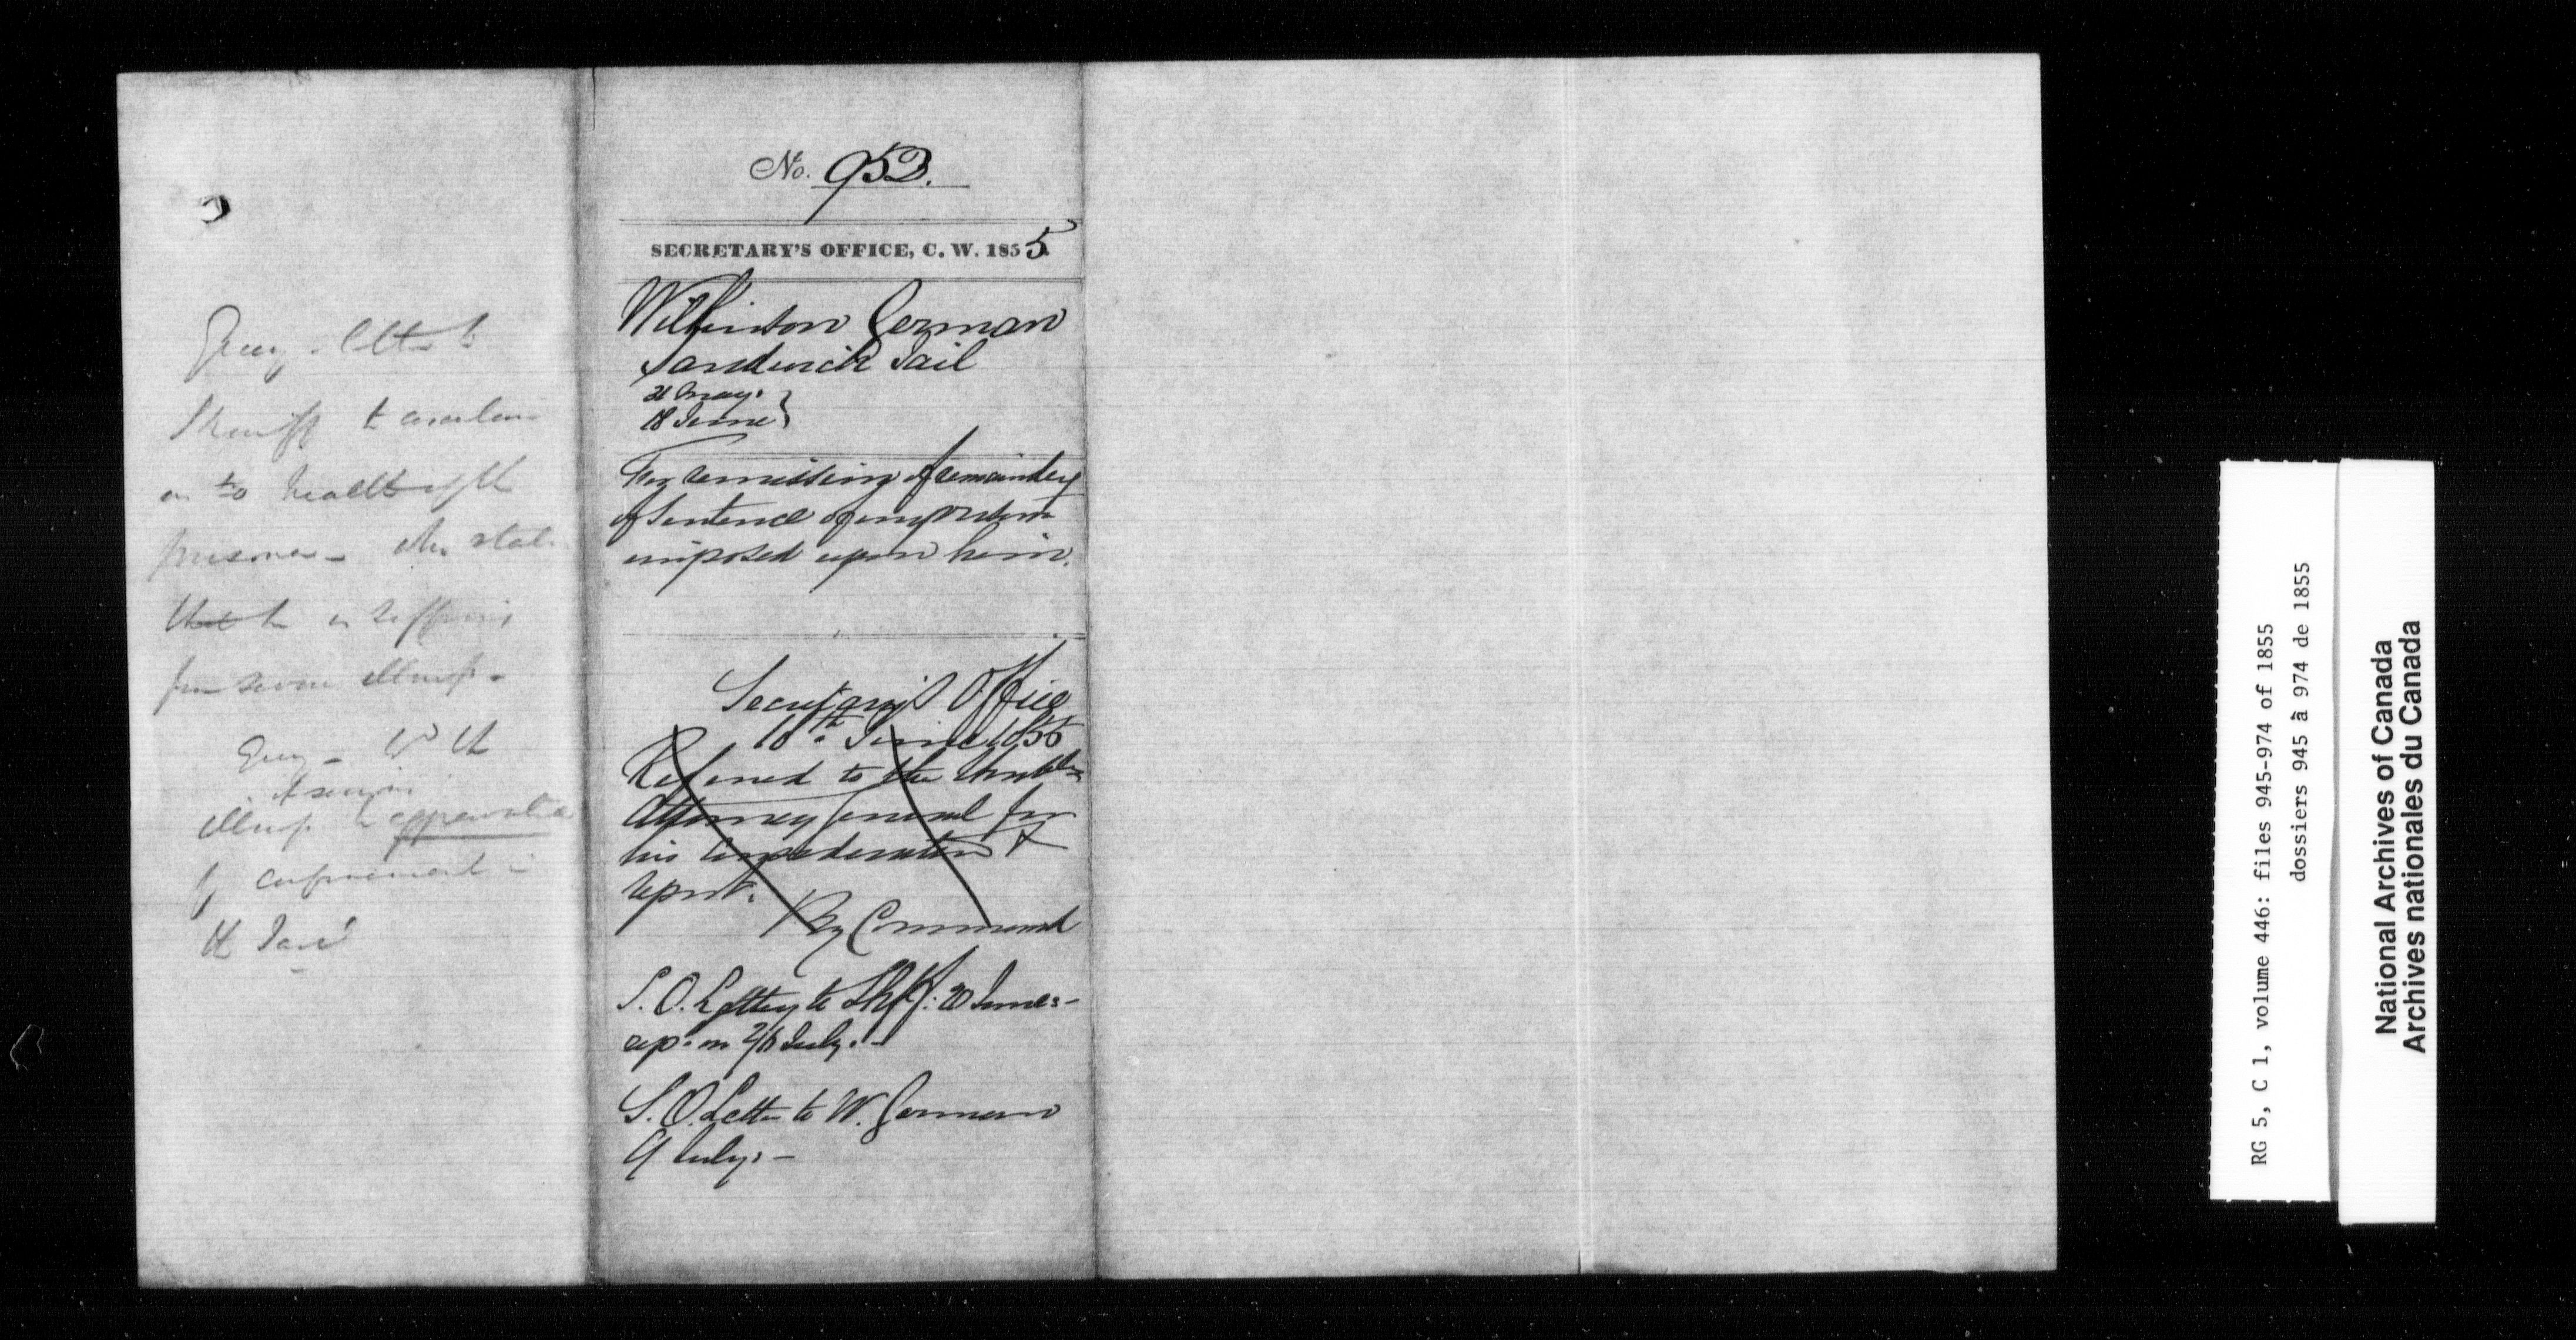 Query. Letter to
Sheriff to ascertain
as to health of the
prisoner - who states
that he is suffering
from severe illness -
Query - Wd the
illness be aggravated
by confinement in
the Jail
No. 953.
SECRETARY'S OFFICE, C. W. 1855
Wilkinson German
Sandwich Jail
21 May.
18 June
For remission of remainder
of Sentence of
imposed upon him.
Secretary's Office
18th June 1855
Referred to the Honble
Attorney General for
his Consideration &
report.
By Command
S. O. Letter to Shff: 20 June:-
rep: on 2/6 July.-
S. O. Letter to W. German
9 July:-
RG 5, C 1, volume 446: files 945-974 of 1855
dossiers 945 à 974 de 1855
National Archives of Canada
Archives nationales du Canada